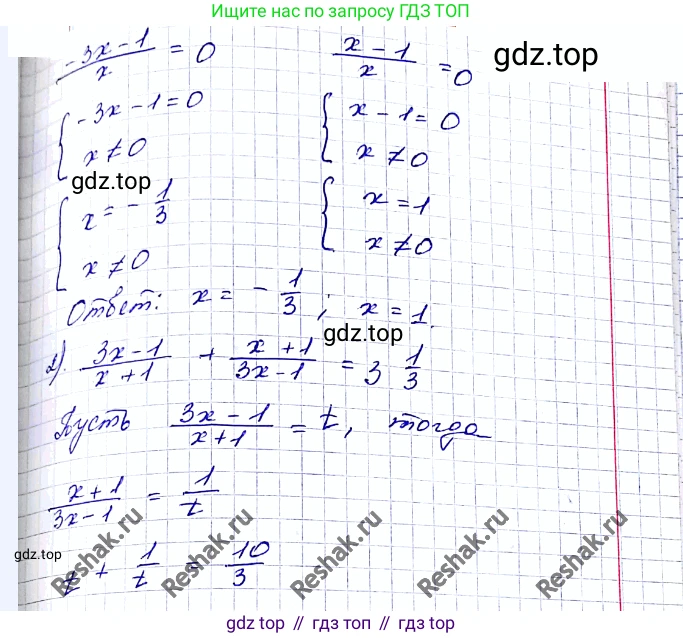 Ищите нас по запросу ГДЗ ТОП
(-3x-1)/x = 0
(x-1)/x = 0
gdz.top
{ -3x-1=0
x≠0
{ x-1=0
x≠0
gdz.top
{ x = -1/3
x≠0
{ x=1
x≠0
Ответ: x = -1/3; x=1.
gdz.top
2). (3x-1)/(x+1) + (x+1)/(3x-1) = 3 1/3
Пусть (3x-1)/(x+1) = t, тогда
(x+1)/(3x-1) = 1/t
gdz.top
t + 1/t = 10/3
Reshak.ru Reshak.ru Reshak.ru Reshak.ru Reshak.ru
gdz.top // гдз топ // gdz top